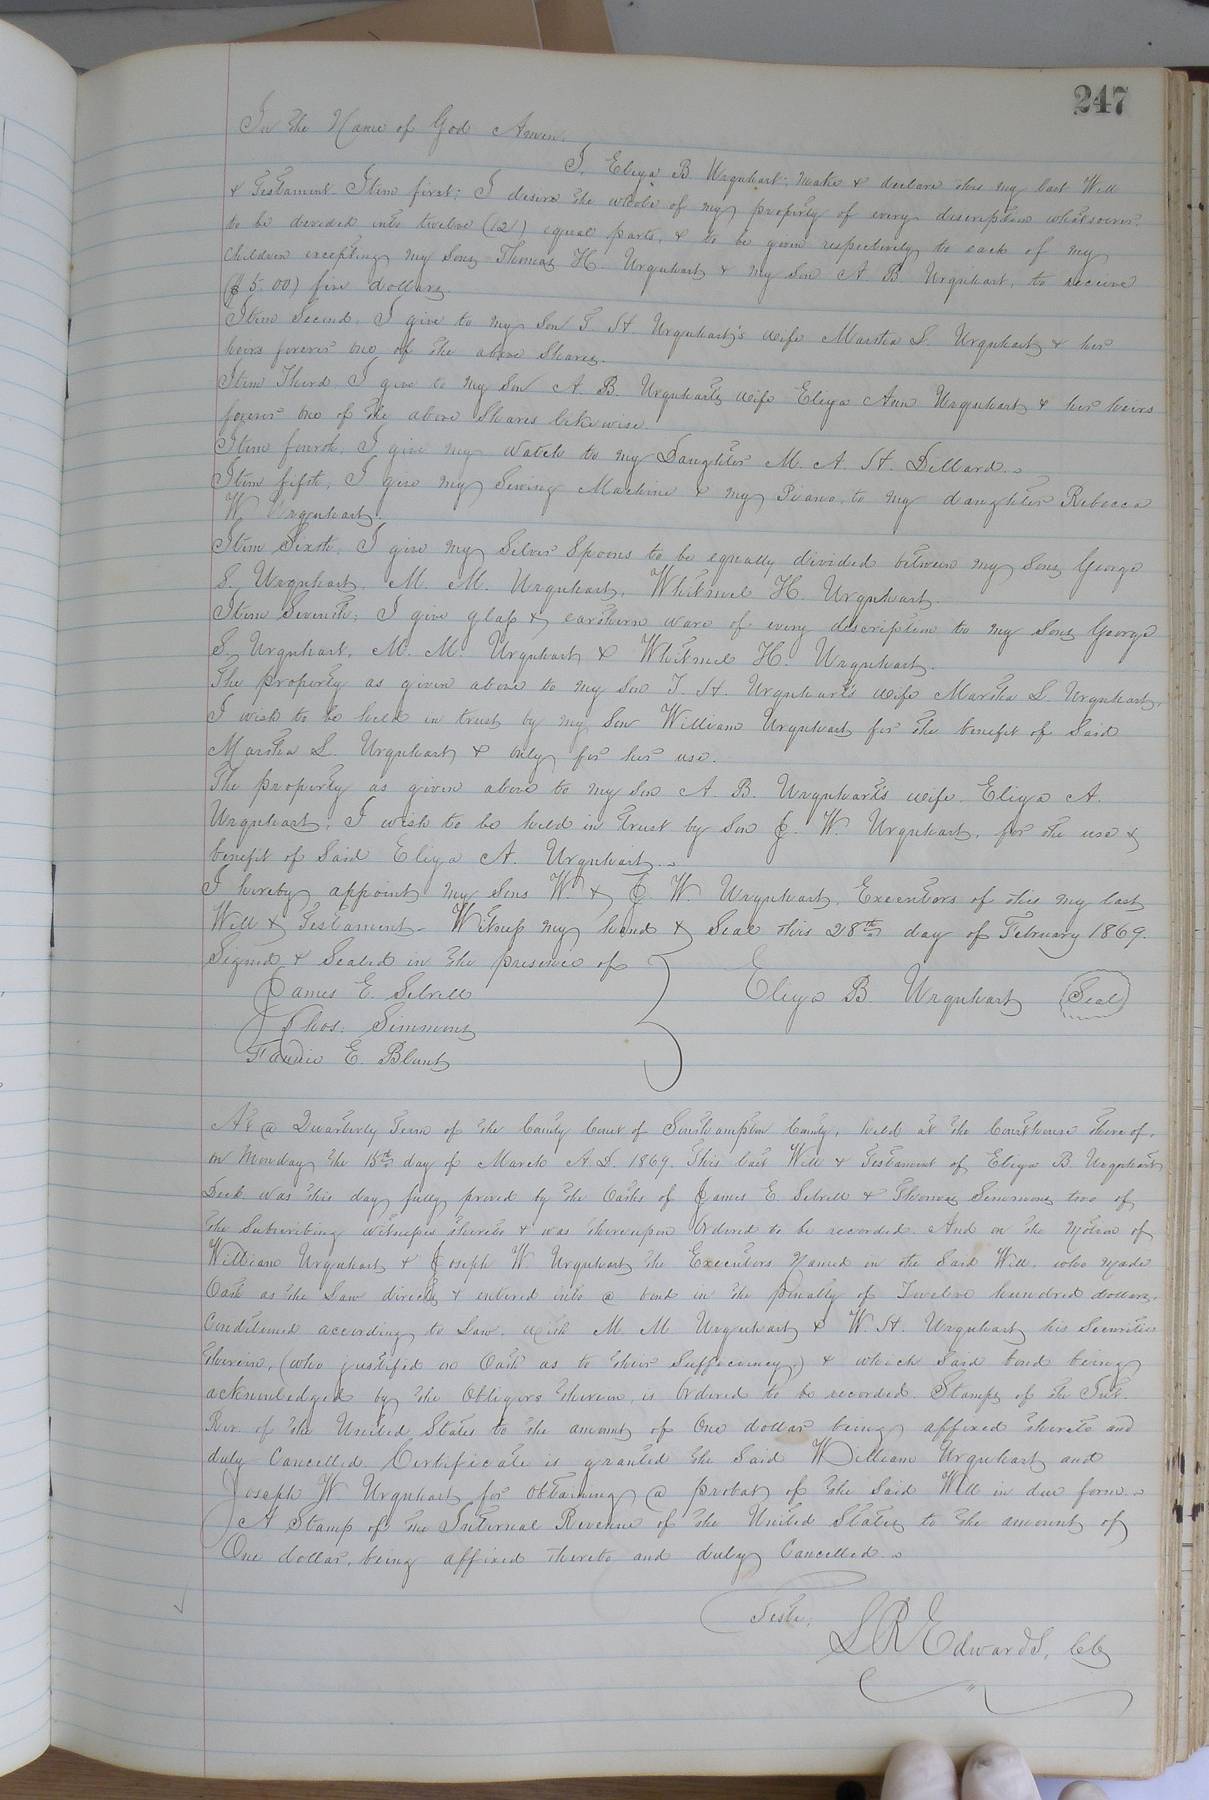 247
In the Name of God Amen.
I, Eliza B. Urquhart, make & declare this my last Will
& Testament. Item first; I desire the whole of my property of every description whatsoever,
to be devided into twelve (12) equal parts, & to be given respectively to each of my
Children excepting my Sons Thomas H. Urquhart & my Son A. B. Urquhart, to receive
($5.00) five dollars.
Item Second. I give to my Son T. H. Urquhart's wife Martha L. Urquhart & her
heirs forever one of the above Shares.
Item Third. I give to my Son A. B. Urquharts wife Eliza Ann Urquhart & her heirs
forever one of the above Shares likewise.
Item fourth. I give my Watch to my Daughter M. A. H. Dillard.
Item fifth; I give my Sewing Machine & my Piano, to my daughter Rebecca
W Urquhart.
Item Sixth; I give my Silver Spoons to be equally divided between my Sons George
S. Urquhart, M. M. Urquhart, Whitmel H. Urquhart.
Item Seventh; I give glass & earthern ware of every description to my Sons George
S. Urquhart, M. M. Urquhart & Whitmel H. Urquhart.
The property as given above to my Son T. H. Urquhart's wife Martha L. Urquhart,
I wish to be held in trust by my Son William Urquhart for the benefit of Said
Martha L. Urquhart & only for her use.
The property as given above to my Son A. B. Urquhart's wife, Eliza A.
Urquhart, I wish to be held in trust by Son J. W. Urquhart, for the use &
benefit of Said Eliza A. Urquhart.
I hereby appoint my Sons W. & J. W. Urquhart, Executors of this my last
Will & Testament - Witness my hand & Seal this 28th day of February 1869.
Signed & Sealed in the presence of
James E. Sebrell
Eliza B. Urquhart (Seal)
Thos. Simmons
Fannie E. Blunt
At @ Quarterly Term of the County Court of Southampton County, held at the Courthouse thereof,
on Monday the 15th day of March A. D. 1869. This last Will & Testament of Eliza B. Urquhart
Decd was this day fully proved by the Oaths of James E Sebrell & Thomas Simmons two of
the Subscribing witnesses thereto & was thereupon Ordered to be recorded. And on the Motion of
William Urquhart & Joseph W. Urquhart the Executors Named in the Said Will, who made
Oath as the Law directs & entered into @ bond in the Penalty of Twelve hundred dollars,
Conditioned according to Law, with M. M Urquhart & W. H. Urquhart his Securities
therein, (who justified on Oath as to their Sufficiency,) & which Said bond being
acknowledged by the Obligors therein, is Ordered to be recorded. Stamps of the Int.
Rev. of the United States to the amount of One dollar being affixed thereto and
duly Cancelled. Certificate is granted the Said William Urquhart and
Joseph W. Urquhart for Obtaining @ probat of the Said Will in due form.
A Stamp of the Internal Revenue of the United States to the amount of
One dollar, being affixed thereto and duly Cancelled.
Teste,
L R Edwards, Clk